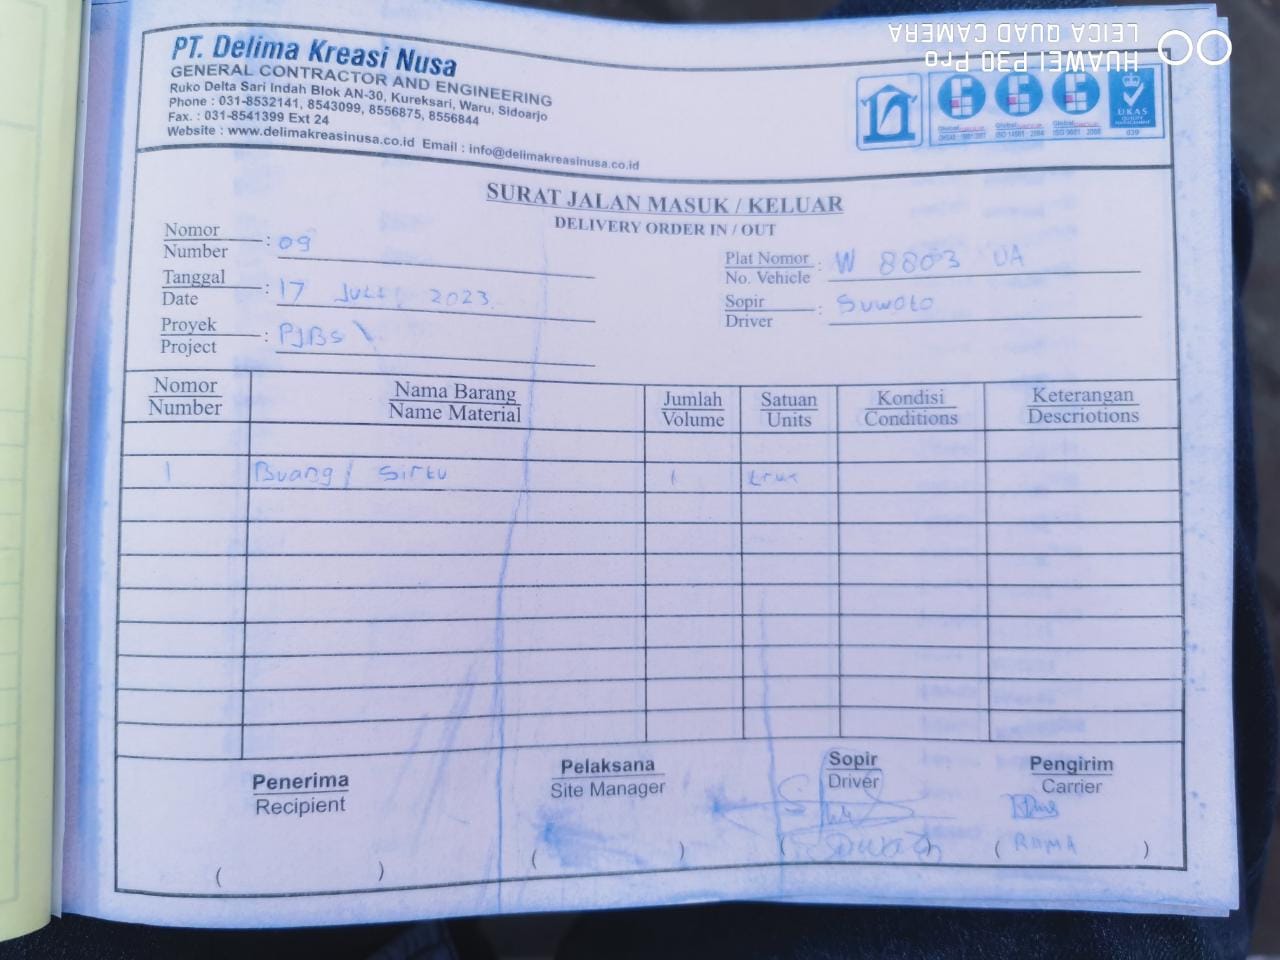 PT. Delima Kreasi Nusa
GENERAL CONTRACTOR AND ENGINEERING
Ruko Delta Sari Indah Blok AN-30, Kureksari, Waru, Sidoarjo
Phone : 031-8532141, 8543099, 8556875, 8556844
Fax. : 031-8541399 Ext 24
Website : www.delimakreasinusa.co.id Email : info@delimakreasinusa.co.id
HUAWEI P30 Pro
LEICA QUAD CAMERA
UKAS
QUALITY
MANAGEMENT
SURAT JALAN MASUK / KELUAR
DELIVERY ORDER IN / OUT
Nomor
Number : 09
Tanggal
Date : 17 JULI 2023
Proyek
Project : PJBS
Plat Nomor
No. Vehicle : W 8803 UA
Sopir
Driver : Suwoto
Nomor Nama Barang Jumlah Satuan Kondisi Keterangan
Number Name Material Volume Units Conditions Descriotions
1 Buang / Sirtu 1 truk
Penerima Pelaksana Sopir Pengirim
Recipient Site Manager Driver Carrier
( ) ( ) ( ) ( )